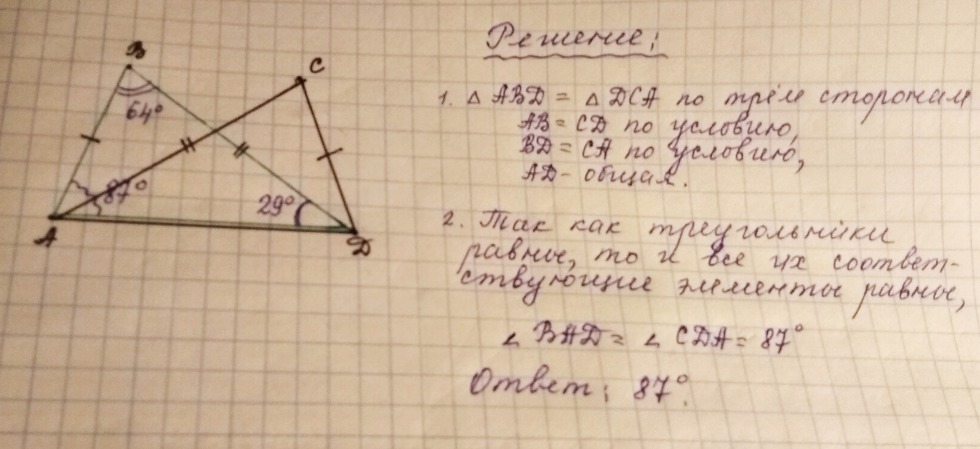 B
C
64°
87°
29°
A
D
Решение:
1. △ ABD = △ DCA по трём сторонам
AB = CD по условию,
BD = CA по условию,
AD - общая.
2. Так как треугольники
равные, то и все их соответ-
ствующие элементы равны,
∠ BAD = ∠ CDA = 87°
Ответ: 87°.